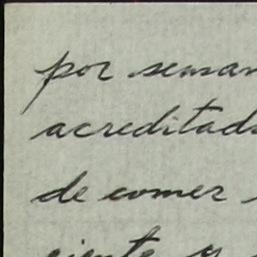 por seman
acreditad
de comer
ciente y